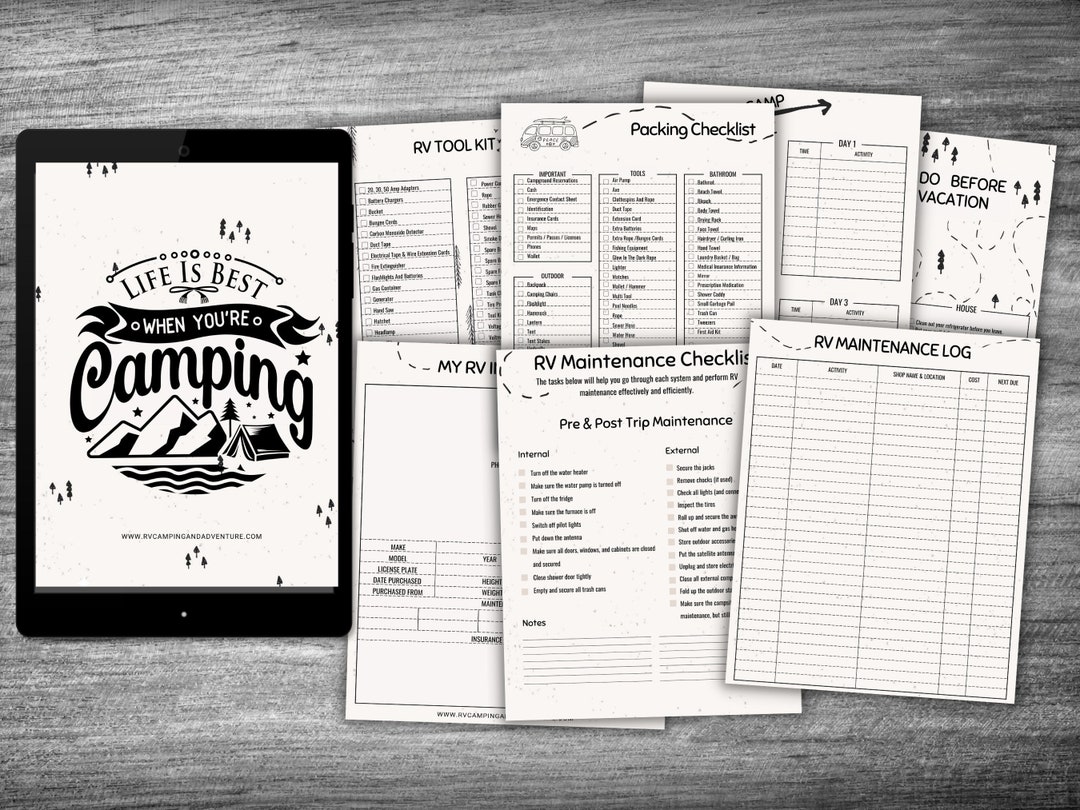 LIFE IS BEST
WHEN YOU'RE
Camping
WWW.RVCAMPINGANDADVENTURE.COM
RV TOOL KIT
20, 30, 50 Amp Adapters
Battery Chargers
Bucket
Bungee Cords
Carbon Monoxide Detector
Duct Tape
Electrical Tape & Wire Extension Cords
Fire Extinguisher
Flashlights And Batteries
Gas Container
Generator
Hand Saw
Hatchet
Headlamp
Power Co
Rope
Rubber G
Sewer Ho
Shovel
Smoke D
Spare B
Spare
Spare
Spare
Tank C
Tire Pr
Tool Ki
Voltag
Packing Checklist
IMPORTANT
Campground Reservations
Cash
Emergency Contact Sheet
Identification
Insurance Cards
Maps
Permits / Passes / Licenses
Phones
Wallet
OUTDOOR
Backpack
Camping Chairs
Flashlight
Hammock
Lantern
Tent
Tent Stakes
TOOLS
Air Pump
Axe
Clothespins And Rope
Duct Tape
Extension Cord
Extra Batteries
Extra Rope /Bungee Cords
Fishing Equipment
Glow In The Dark Rope
Lighter
Matches
Mallet / Hammer
Multi Tool
Pool Noodles
Rope
Sewer Hose
Shovel
BATHROOM
Bathmat
Beach Towel
Bleach
Body Towel
Drying Rack
Face Towel
Hairdryer / Curling Iron
Hand Towel
Laundry Basket / Bag
Medical Insurance Information
Mirror
Prescription Medication
Shower Caddy
Small Garbage Pail
Trash Can
Tweezers
First Aid Kit
CAMP
DAY 1
TIME ACTIVITY
DAY 3
TIME ACTIVITY
DO BEFORE
VACATION
HOUSE
Clean out your refrigerator before you leave.
MY RV I
PH
MAKE
MODEL YEAR
LICENSE PLATE
DATE PURCHASED HEIGHT
PURCHASED FROM WEIGHT
MAINTE
INSURANCE
WWW.RVCAMPINGA
.COM
RV Maintenance Checklis
The tasks below will help you go through each system and perform RV
maintenance effectively and efficiently.
Pre & Post Trip Maintenance
Internal
Turn off the water heater
Make sure the water pump is turned off
Turn off the fridge
Make sure the furnace is off
Switch off pilot lights
Put down the antenna
Make sure all doors, windows, and cabinets are closed
and secured
Close shower door tightly
Empty and secure all trash cans
Notes
External
Secure the jacks
Remove chocks (if used)
Check all lights (and conne
Inspect the tires
Roll up and secure the aw
Shut off water and gas
Store outdoor accessorie
Put the satellite antenna
Unplug and store electri
Close all external comp
Fold up the outdoor sta
Make sure the camp
maintenance, but still
RV MAINTENANCE LOG
DATE ACTIVITY SHOP NAME & LOCATION COST NEXT DUE